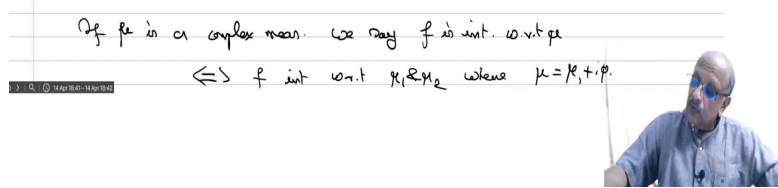 If μ is a complex meas. we say f is int. w.r.t μ
⟺ f int w.r.t μ₁ & μ₂ where μ = μ₁ + i μ.
14 Apr 18:41-14 Apr 18:42